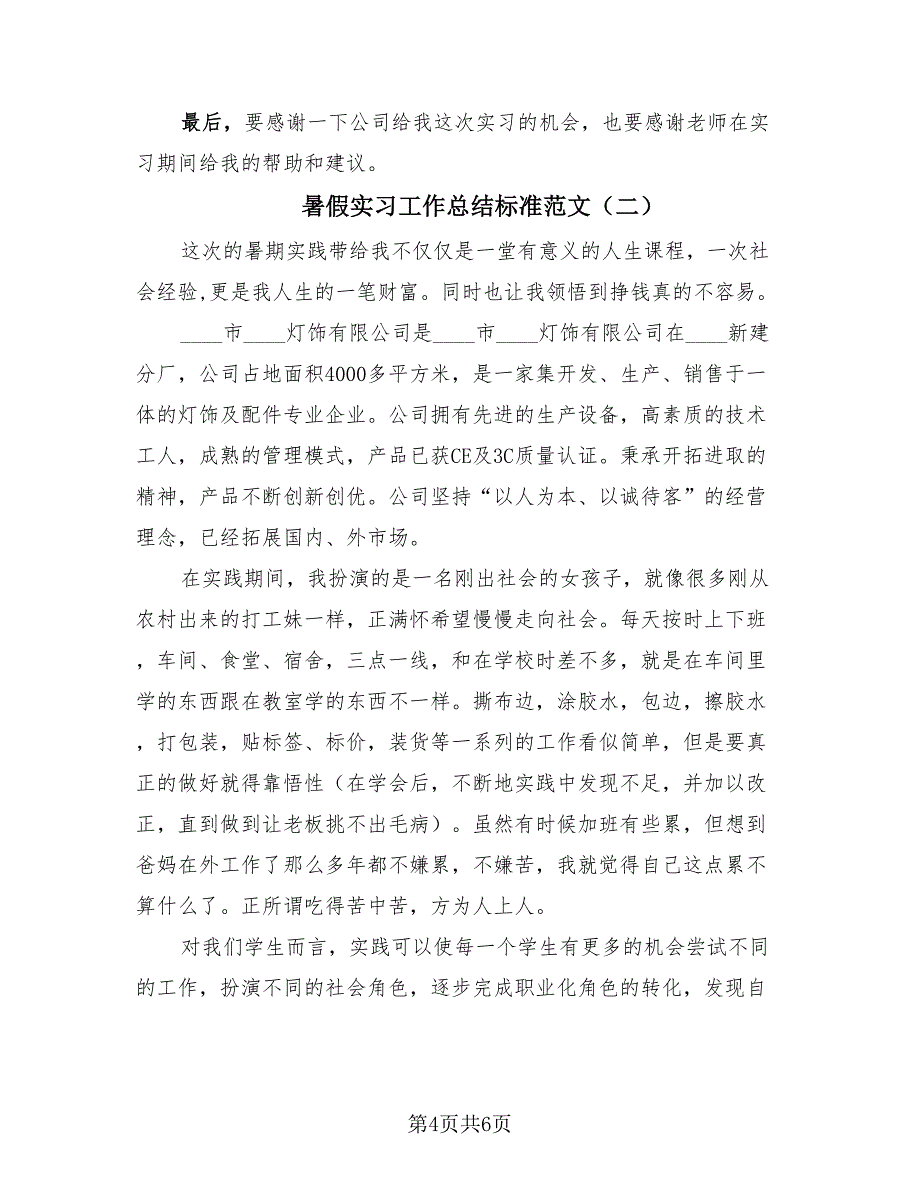 最后，要感谢一下公司给我这次实习的机会，也要感谢老师在实
习期间给我的帮助和建议。
暑假实习工作总结标准范文（二）
这次的暑期实践带给我不仅仅是一堂有意义的人生课程，一次社
会经验,更是我人生的一笔财富。同时也让我领悟到挣钱真的不容易。
____市____灯饰有限公司是____市____灯饰有限公司在____新建
分厂，公司占地面积4000多平方米，是一家集开发、生产、销售于一
体的灯饰及配件专业企业。公司拥有先进的生产设备，高素质的技术
工人，成熟的管理模式，产品已获CE及3C质量认证。秉承开拓进取的
精神，产品不断创新创优。公司坚持“以人为本、以诚待客”的经营
理念，已经拓展国内、外市场。
在实践期间，我扮演的是一名刚出社会的女孩子，就像很多刚从
农村出来的打工妹一样，正满怀希望慢慢走向社会。每天按时上下班
，车间、食堂、宿舍，三点一线，和在学校时差不多，就是在车间里
学的东西跟在教室学的东西不一样。撕布边，涂胶水，包边，擦胶水
，打包装，贴标签、标价，装货等一系列的工作看似简单，但是要真
正的做好就得靠悟性（在学会后，不断地实践中发现不足，并加以改
正，直到做到让老板挑不出毛病）。虽然有时候加班有些累，但想到
爸妈在外工作了那么多年都不嫌累，不嫌苦，我就觉得自己这点累不
算什么了。正所谓吃得苦中苦，方为人上人。
对我们学生而言，实践可以使每一个学生有更多的机会尝试不同
的工作，扮演不同的社会角色，逐步完成职业化角色的转化，发现自
第4页共6页